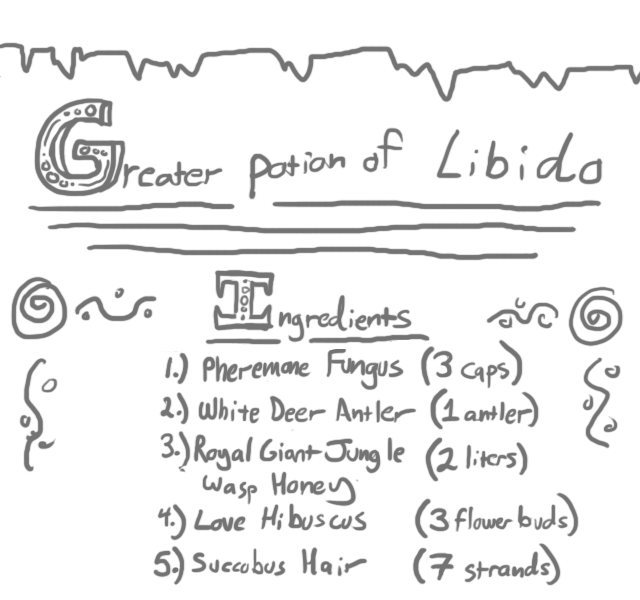 Greater potion of Libido
Ingredients
1.) Pheremone Fungus (3 caps)
2.) White Deer Antler (1 antler)
3.) Royal Giant Jungle (2 liters)
Wasp Honey
4.) Love Hibuscus (3 flower buds)
5.) Succubus Hair (7 strands)